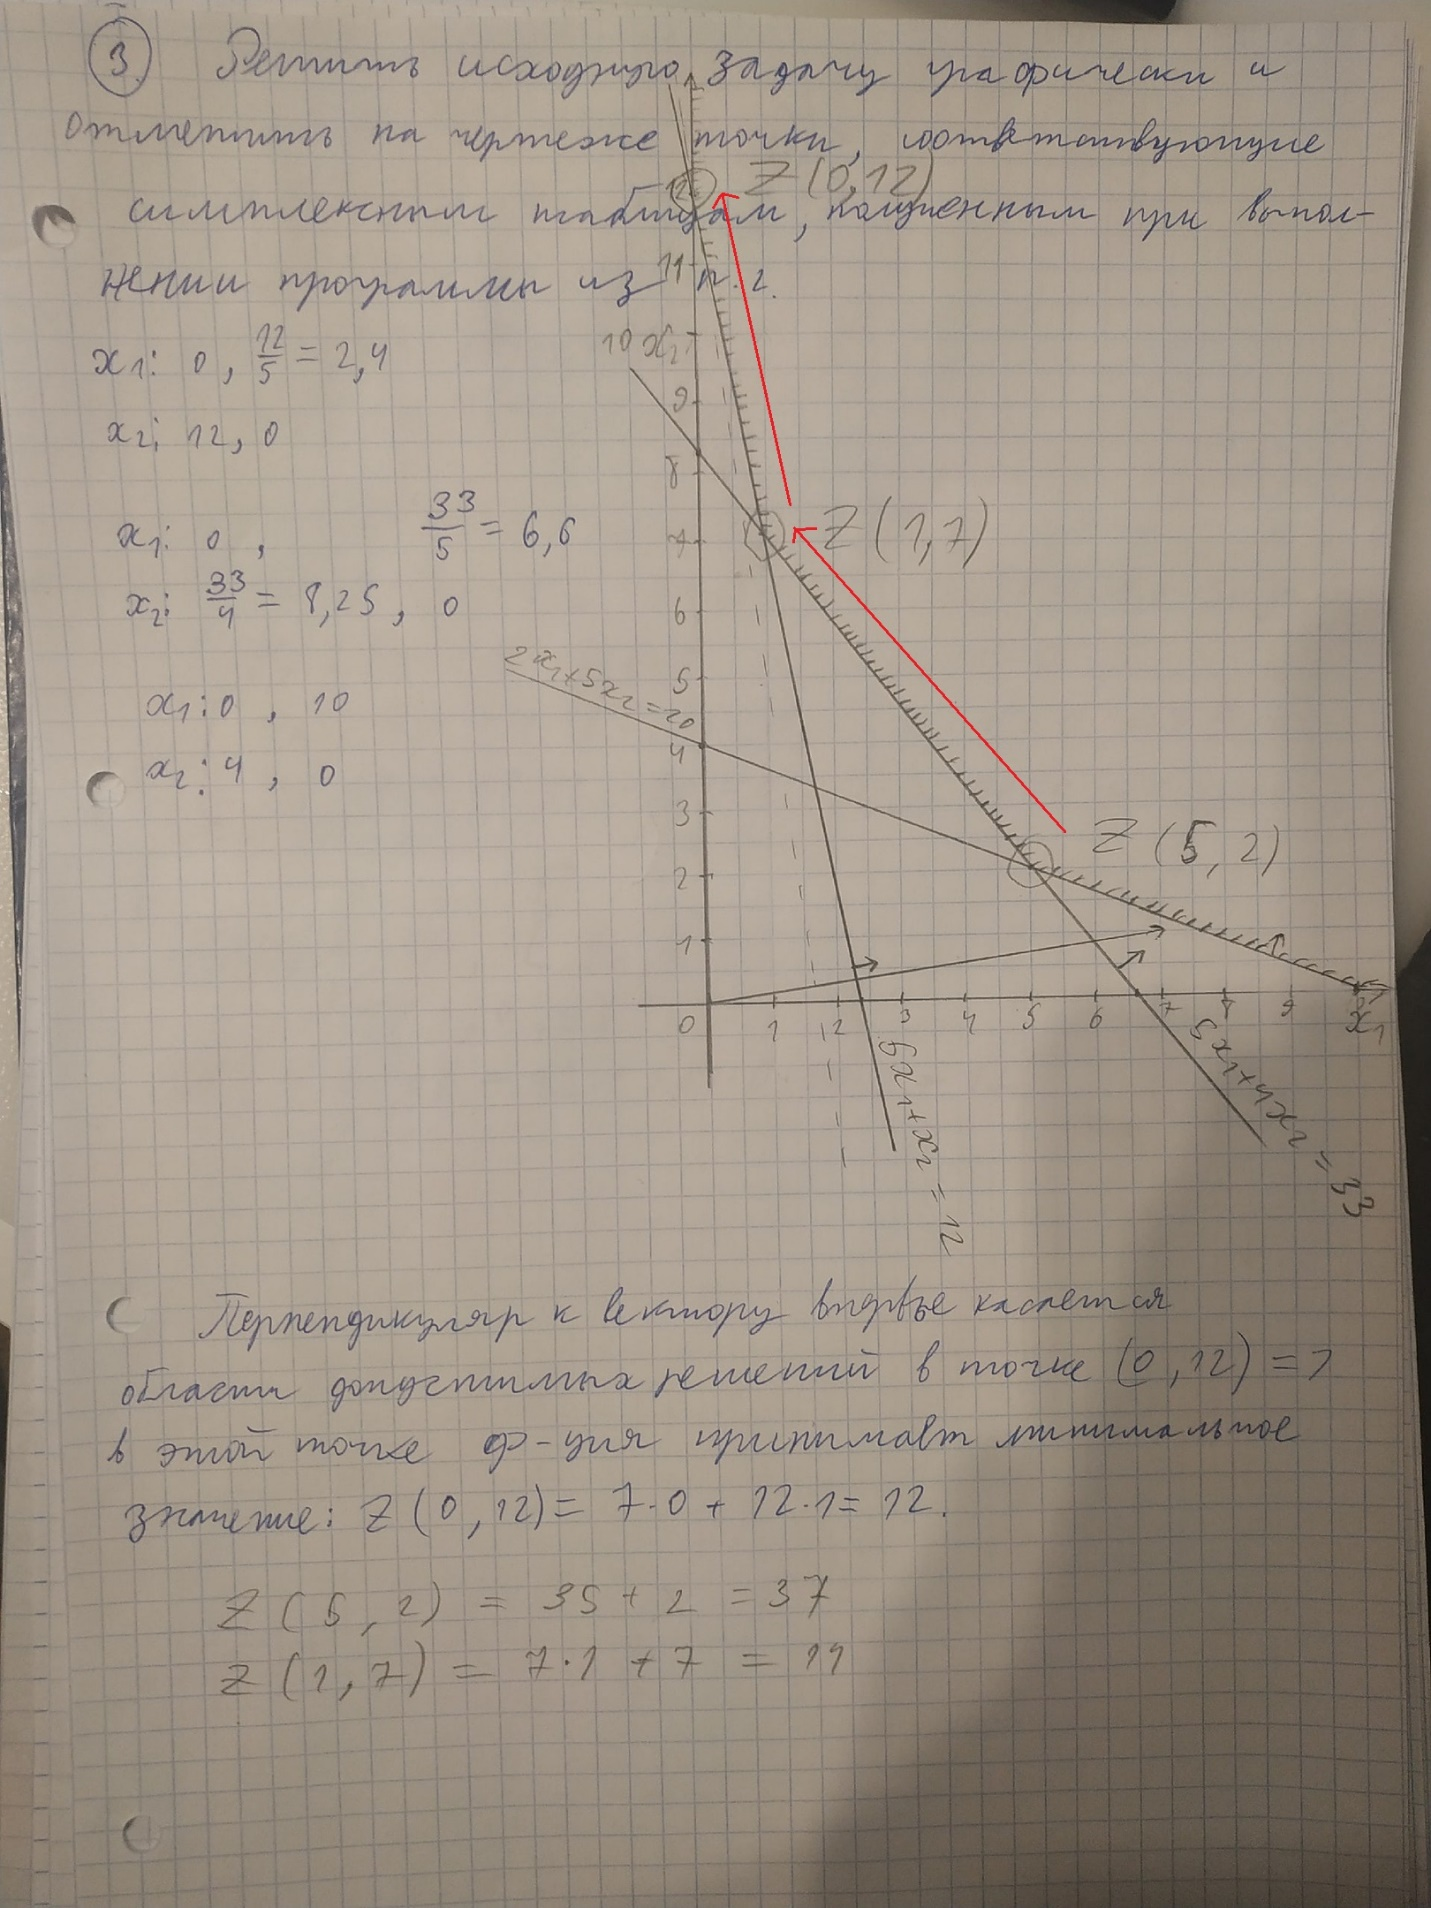 3. Решить исходную задачу графически и
отметить на чертеже точки, соответствующие
симплексным таблицам, полученным при выпол-
нении программы из п.2.
x1: 0, 12/5 = 2,4
x2: 12, 0
x1: 0, 33/5 = 6,6
x2: 33/4 = 8,25, 0
x1: 0, 10
x2: 4, 0
Z (0,12)
12
11
10 x2
9
8
7
Z (1,7)
6
5
2x1+5x2=20
4
3
2
Z (5, 2)
1
0 1 2 3 4 5 6 7 8 9 x1
5x1+x2 = 12
5x1+4x2 = 33
Перпендикуляр к вектору впервые касается
области допустимых решений в точке (0,12) =>
в этой точке ф-ция принимает минимальное
значение: Z (0,12) = 7·0 + 12·1 = 12.
Z (5, 2) = 35 + 2 = 37
Z (1, 7) = 7·1 + 7 = 14